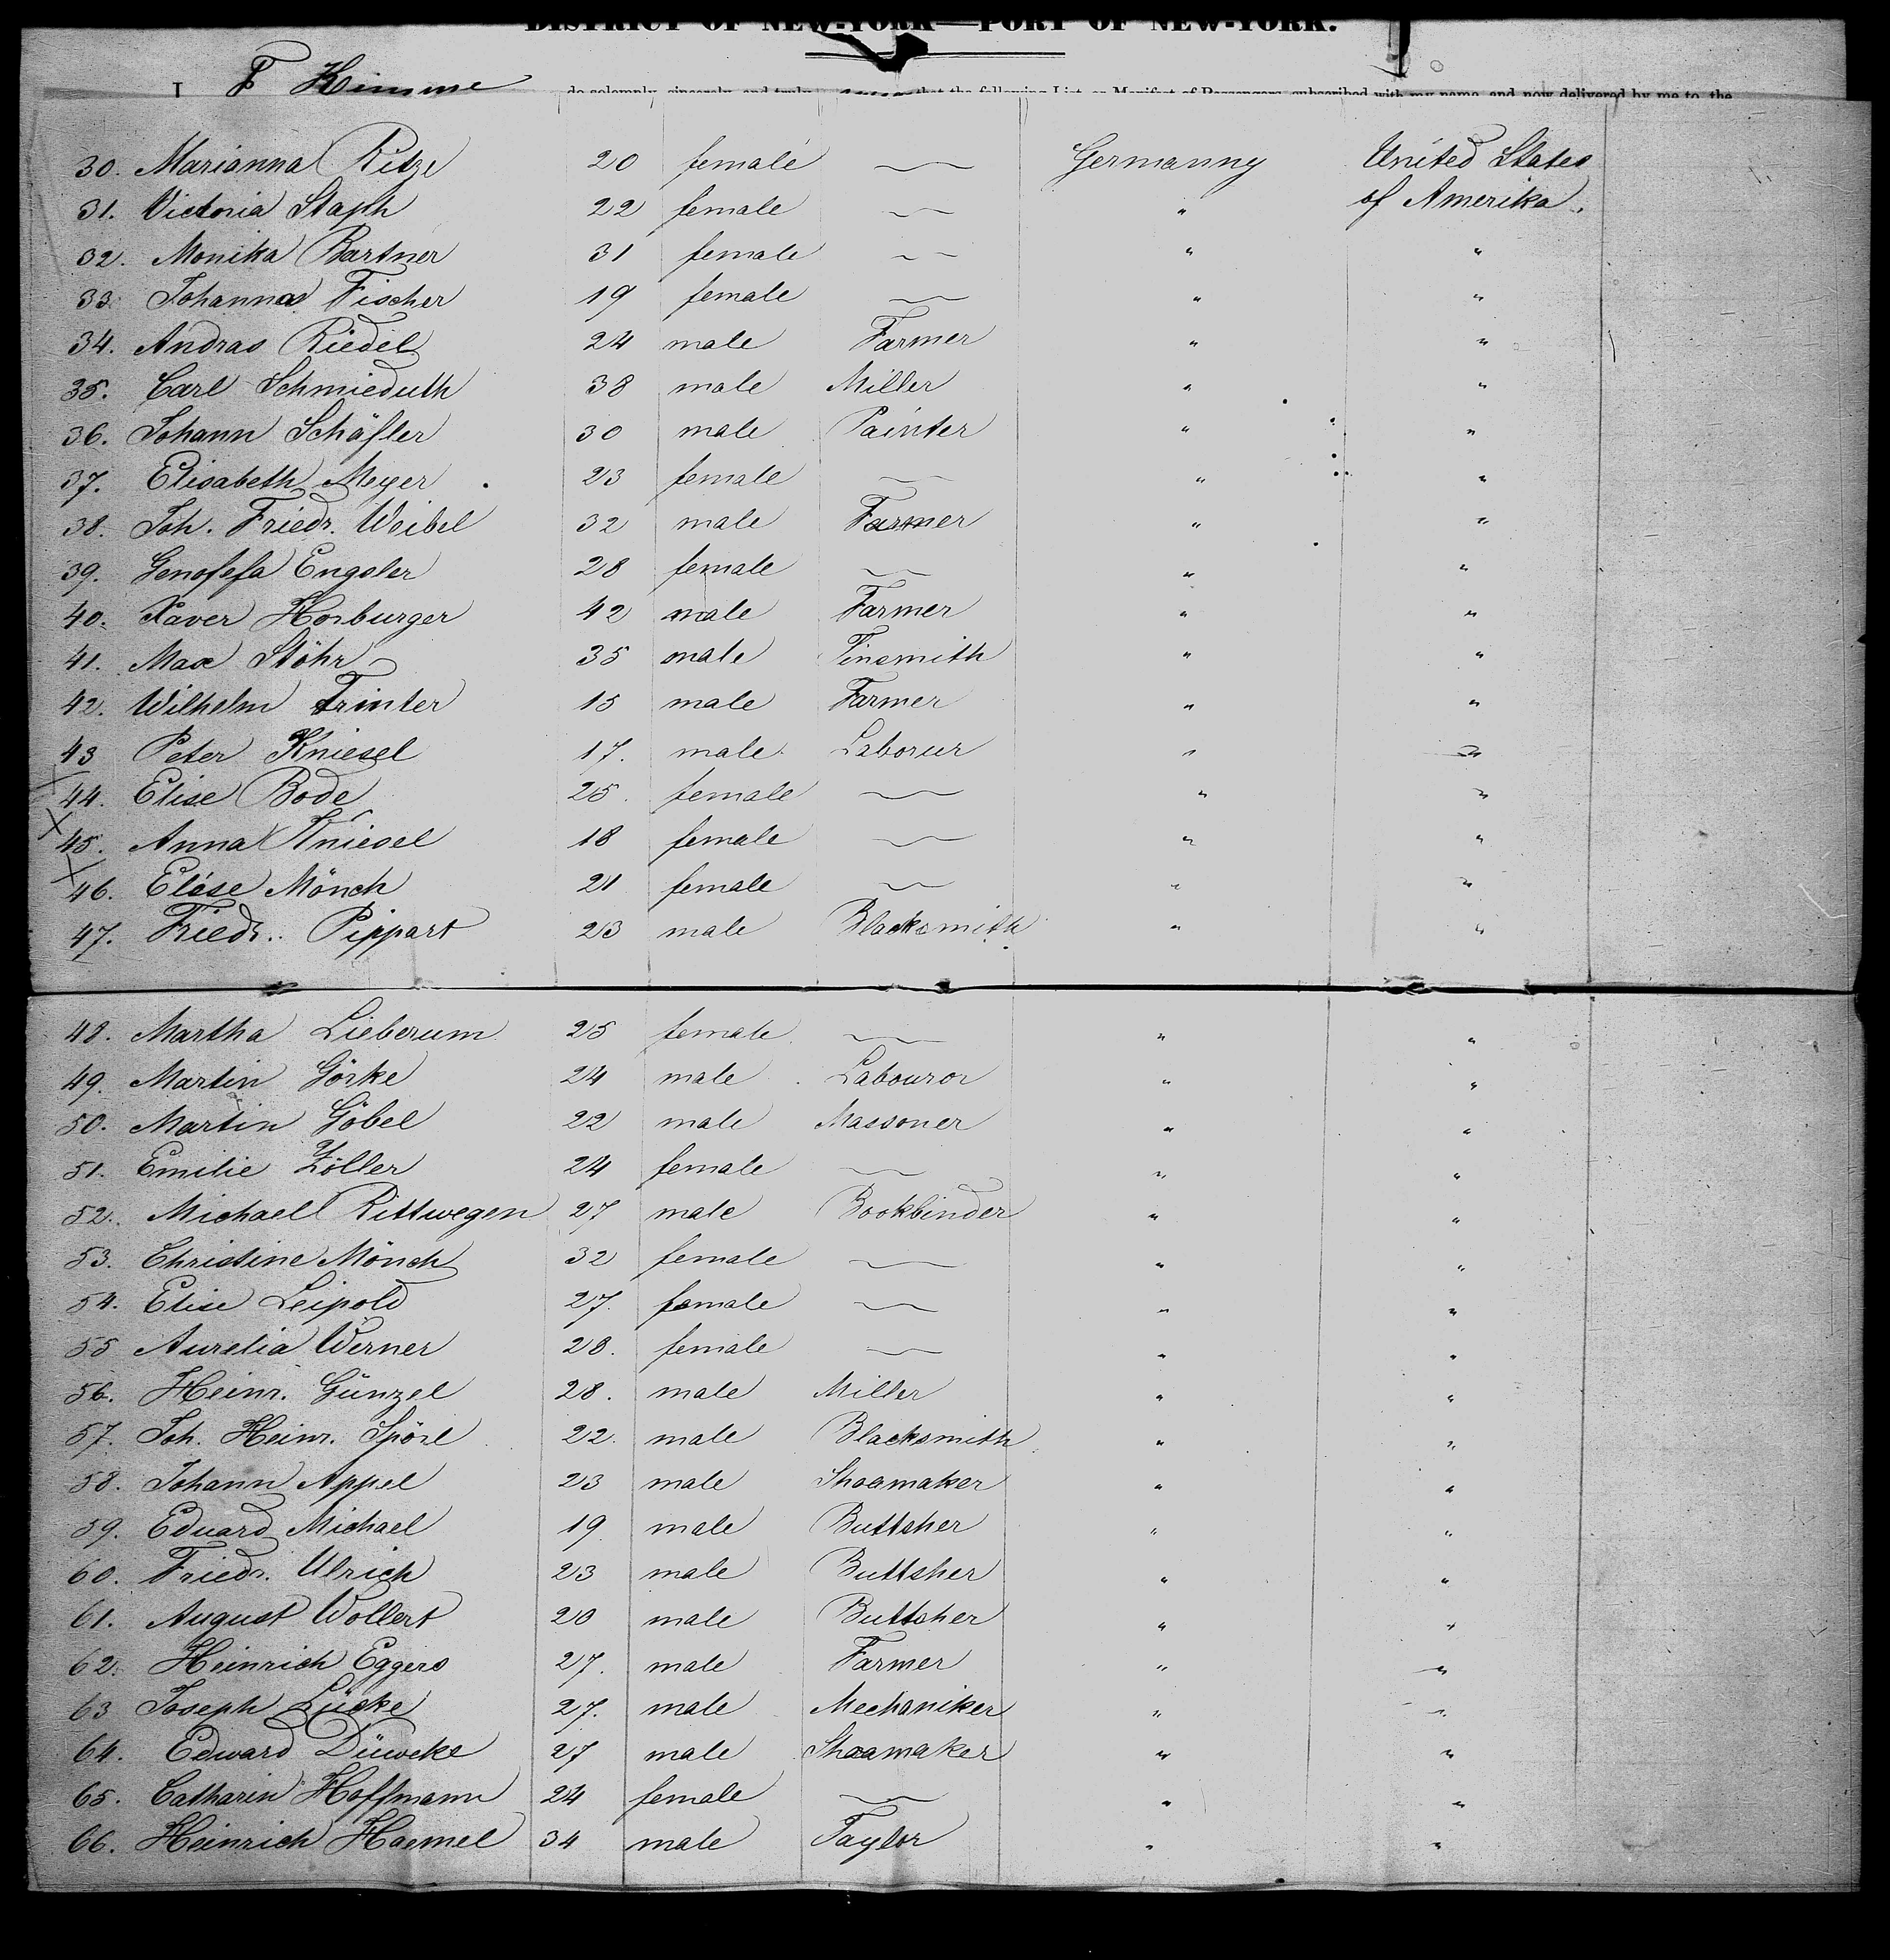 DISTRICT OF NEW-YORK—PORT OF NEW-YORK.
I F Kimme do solemnly, sincerely, and truly swear that the following List or Manifest of Passengers, subscribed with my name, and now delivered by me to the
30. Marianna Ritze 20 female — Germanny United States
31. Victoria Staph 22 female — " of Amerika.
32. Monika Bartner 31 female — " "
33. Johanna Fischer 19 female — " "
34. Andras Riedel 24 male Farmer " "
35. Carl Schmieduth 38 male Miller " "
36. Johann Schäfler 30 male Painter " "
37. Elisabeth Meyer 23 female — " "
38. Joh. Friedr. Weibel 32 male Farmer " "
39. Genofefa Engeler 28 female — " "
40. Xaver Horburger 42 male Farmer " "
41. Max Stöhr 35 male Tinsmith " "
42. Wilhelm Trinter 15 male Farmer " "
43 Peter Kniesel 17. male Laborur " "
44. Elise Bode 25. female — " "
45. Anna Kniesel 18 female — " "
46. Elise Mönch 21 female — " "
47. Friedr. Pippart 23 male Blacksmith " "
48. Martha Lieberum 25 female — " "
49. Martin Görke 24 male Labouror " "
50. Martin Göbel 22 male Massoner " "
51. Emilie Zöller 24 female — " "
52. Michael Rittwegen 27 male Bookbinder " "
53. Christine Mönch 32 female — " "
54. Elise Leipold 27. female — " "
55 Aurelia Werner 28. female — " "
56. Heinr. Günzel 28. male Miller " "
57. Joh. Heinr. Spörl 22. male Blacksmith " "
58. Johann Appel 23 male Shoamaker " "
59. Eduard Michael 19 male Buttsher " "
60. Friedr. Ulrich 23 male Buttsher " "
61. August Wollert 20 male Buttsher " "
62. Heinrich Eggers 27. male Farmer " "
63 Joseph Lücke 27. male Mechaniker " "
64. Edward Düwcke 27 male Shoamaker " "
65. Catharin Hoffmann 24 female — " "
66. Heinrich Haemel 34 male Taylor " "